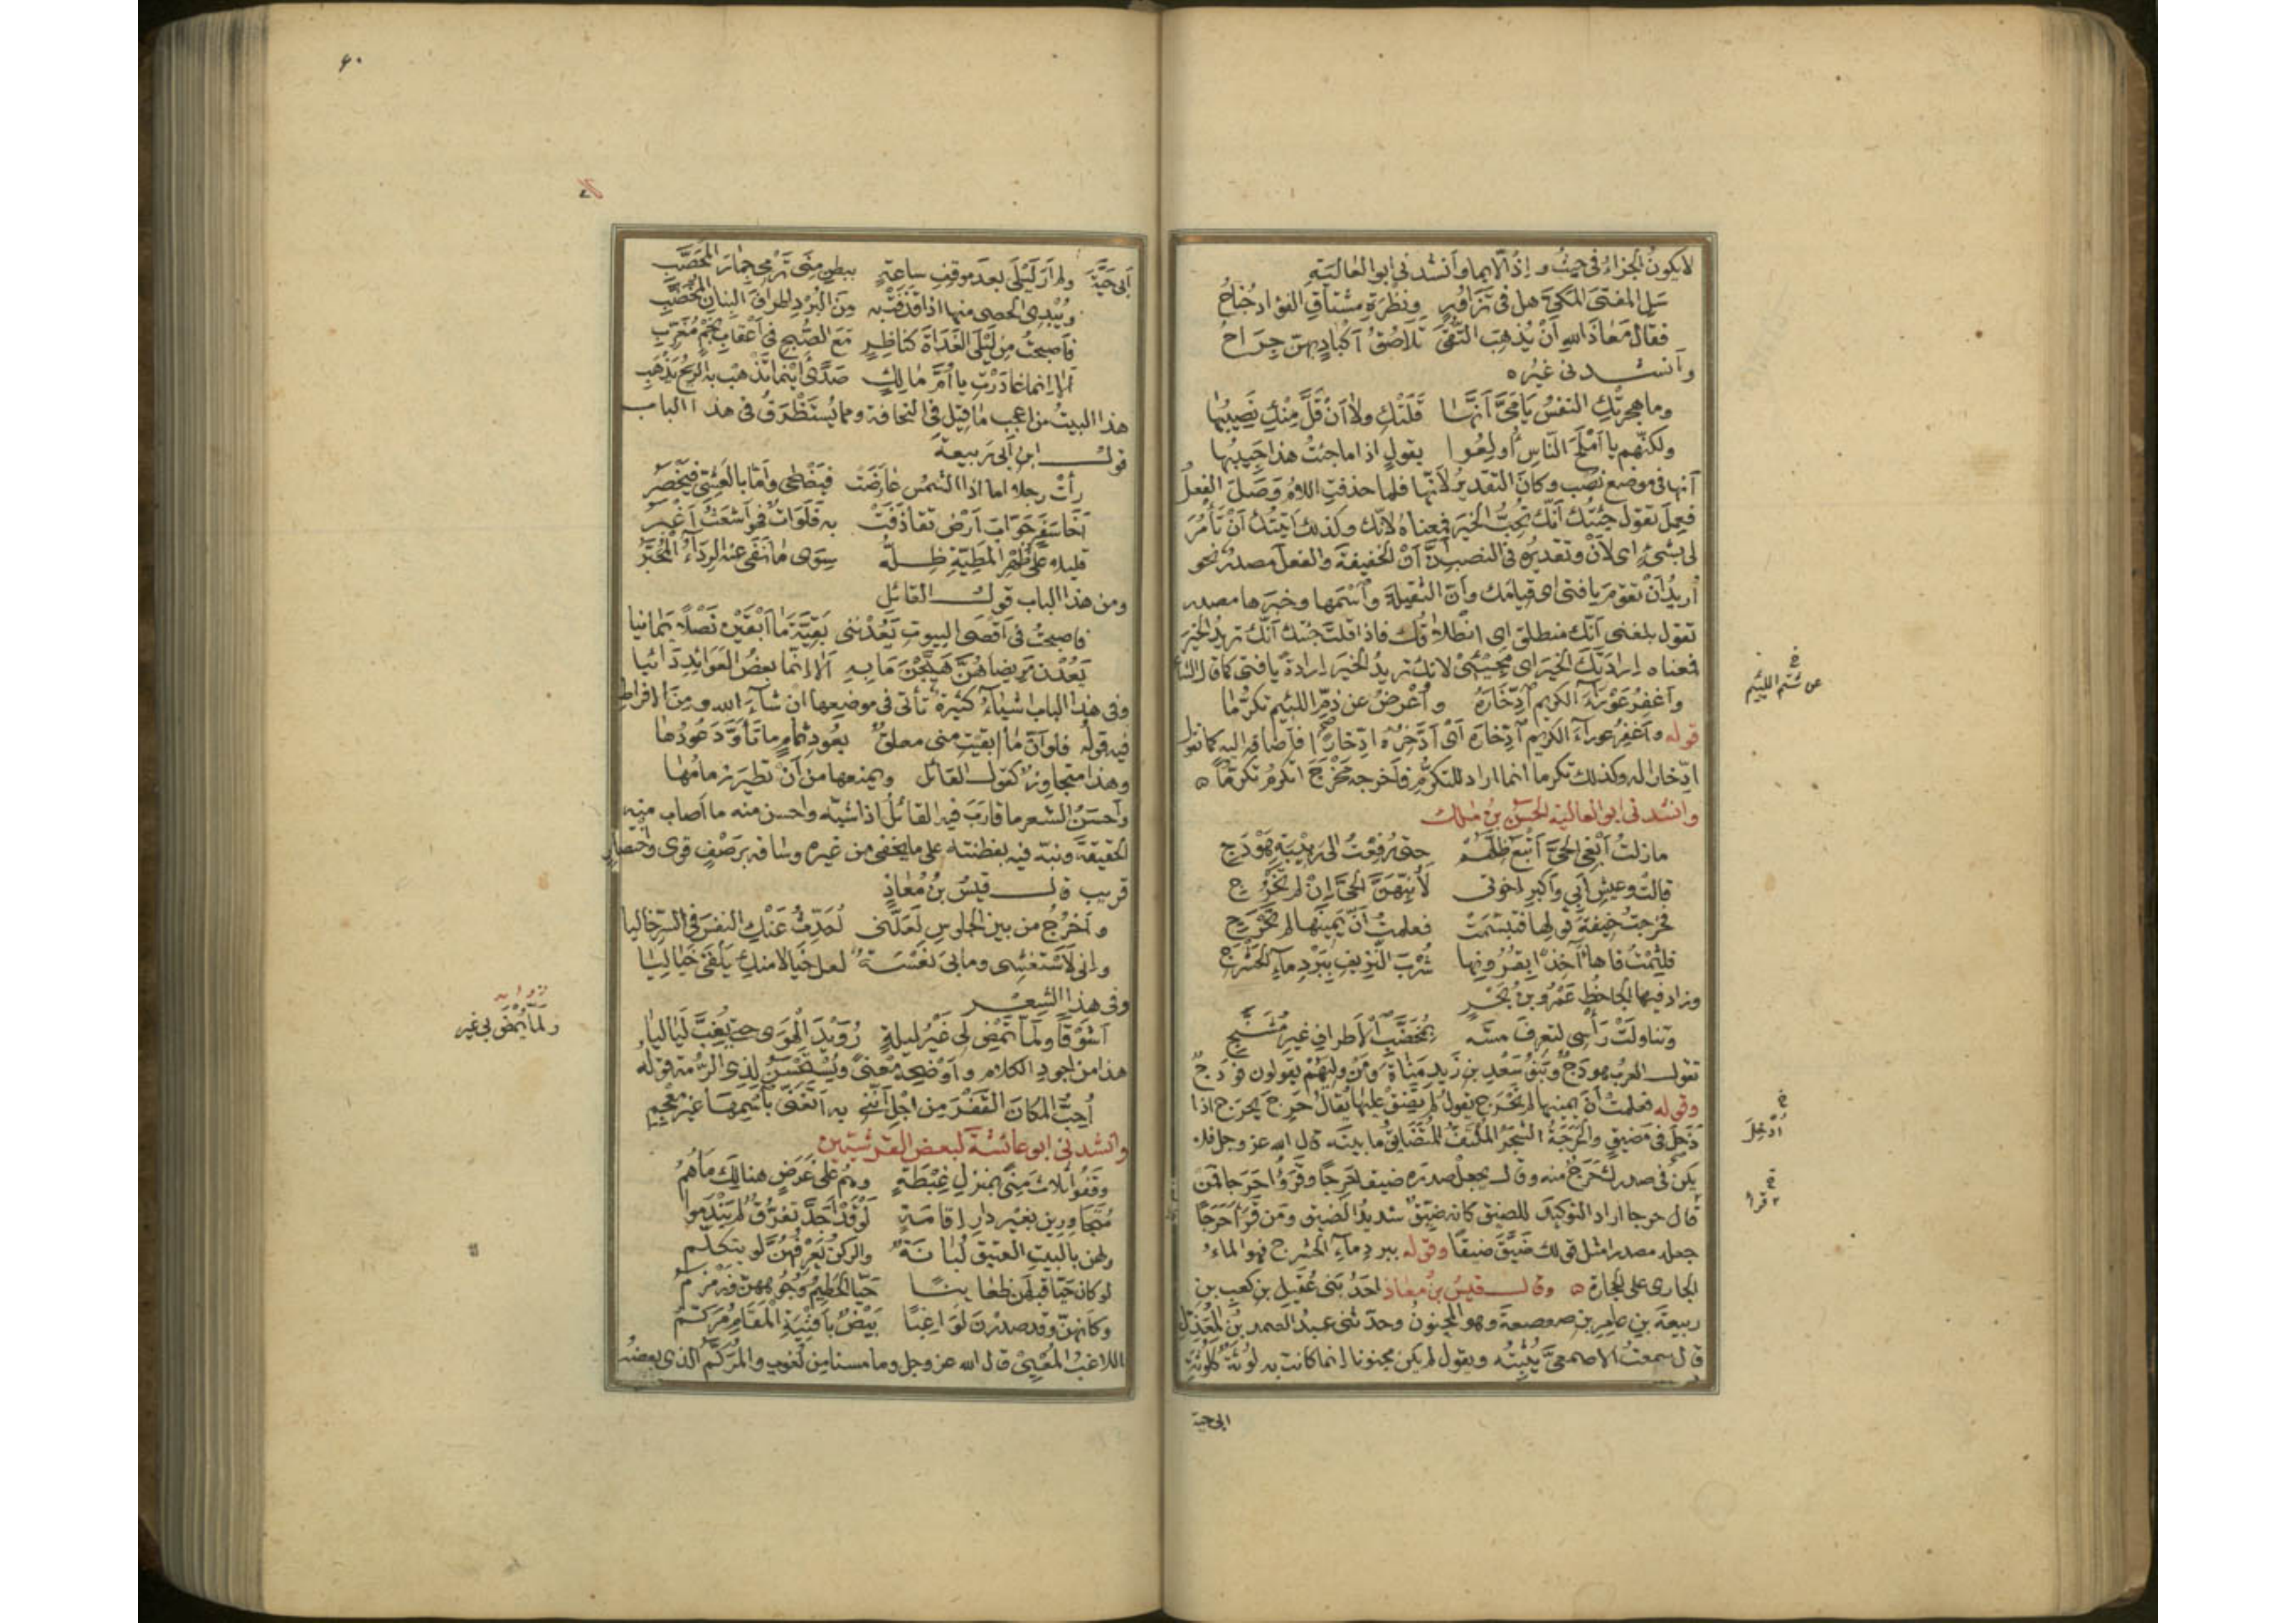 لا يكون الجزاء في حيث و إذ الّا بما وأنشدني ابو العالية
سَلِ المفتىَ المكيَّ هل في تَزاوُرٍ ونظرَةِ مشتاقِ الفؤاد جُناحُ
فقال مَعاذَ اللهِ اَنْ يُذهِبَ التُّقَى تَلاصُقُ اَكْبادٍ بهنّ جِرَاحُ
وأنشدنى غيره
وما هجرتكِ النفسُ يَا مَىَّ اَنَّهَا قَلَتْكِ ولا اَنْ قَلَّ مِنْكِ نَصِيبُهَا
ولكنّهم يا اَمْلَحَ النّاسِ اُولِعُوا بقولٍ اذا ما جئتُ هذا حَبِيبُها
اَنها فى موضع نَصْب وكانَ التقديرُ لأنّها فلما حذفتِ اللامُ وَصَلَ الفعلُ
فعملَ تقولُ جئتك اَنّك تحبُّ الخيرَ فمعناهُ لأنّك وكذلك اَتيتُك اَنْ تأْمُرَ
لى بشىءٍ اى لأنْ وتقديرُه فى النصب اَنَّ اَنْ الخفيفةَ والفعلَ مصدرٌ نحو
اُريدُ اَنْ تقومَ يا فتى اى قيامَك واَنّ الثقيلةَ واسْمَها وخبرَها مصدر
تقول بلغنى اَنّك منطلق اى انطلاقُك فاذا قلتَ جئتك اَنّك تريدُ الخيرَ
فمعناه اِرادَتَكَ الخيرَ اى مَجِيئىْ لانّك تريدُ الخيرَ ارادةً يا فتى كما قال الشاعر
وأغفِرُ عَوْراءَ الكريمِ اْدِّخَارَهُ وأُعْرِضُ عن ذمِّ اللئيم تكرُّمَا
قوله وأغفِرُ عوراءَ الكريم ادّخارَه اَىْ اَدَّخِرُه ادّخارًا فأضافه اليه كما تقول
ادّخارًا له وكذلك تكرما انما اراد للتكرُّم فأخرجه مَخْرَجَ اتكرمُ تكرّمًا
وانشدنى ابو العالية الحسنُ بنُ مٰلك
مازلتُ اَبْغِى الحىَّ اَتْبَعُ ظِلَّهُمْ حتى دُفِعْتُ الى رَبيبَةِ هَوْدَجِ
قالتْ وعيشِ اَبى وأكبرِ اخوتى لَأُنَبِّهَنَّ الحىَّ اِنْ لم تَخْرُجِ
فخرجتُ خيفةَ قولها فتبسَّمَتْ فعلمتُ اَنَّ يمينَها لم تَحْرَجِ
فلثِمْتُ فاها آخِذًا بقُرُونِها شُرْبَ النَّزِيفِ بِبَرْدِ ماءِ الحَشْرَجِ
وزاد فيها الجاحظُ عَمْرُو بنُ بَحْرٍ
وتناولَتْ رَأْسِى لتعرفَ مسَّه بمُخَضَّبِ الأطرافِ غيرِ مُشَنَّجِ
تقول العربُ هودَجٌ وبَنُو سَعْدِ بنِ زَيدِ مَنَاةَ ومَنْ وليَهُمْ يقولون فودَجٌ
وقوله فعلمتُ اَنّ يمينها لم تَحْرَجِ يقول لم تضِقْ عليها يُقالُ حَرِجَ يَحْرَجُ اذا
دَخَلَ فى مَضيقٍ والحَرَجَةُ الشجرُ الملتفُّ المُتضَايِقُ ما بينَه قال الله عز وجل فلا
يكن فى صدرك حَرَجٌ منه وقال يجعلْ صدرَه ضيقا حَرِجًا وقُرِئَ حَرَجا فمَن
قال حرِجا اراد التوكيدَ للضيق كأنه ضيّقٌ شديدُ الضيق ومَن قرأ حَرَجًا
جعله مصدرا مثل قولك ضَيَّقَ ضيقًا وقوله ببردِ ماءِ الحشرج فهو الماءُ
الجارى على الحجارة وقال قيسُ بنُ معاذ احَدُ بَنى عُقَيلِ بنِ كعبِ بنِ
ربيعةَ بنِ عامِرِ بنِ صعصعةَ وهو المجنونُ وحدّثنى عبدُ الصمد بنُ المُعذَّلِ
قال سمعتُ الاصمعىَّ يُثْبِتُه ويقول لم يكن مجنونا انما كانت به لُوثَةٌ كلُوثَةِ
ابى حية
عن شتم اللئيم
أُدْخِلَ
قرأ
٦٠
اَبى حَيَّةَ ولم اَرَ لَيْلَى بعدَ موقفِ ساعةٍ ببطنِ مِنًى تَرْمِى جِمارَ المُحَصَّبِ
ويُبْدِى الحصى منها اذا قذفَتْ به مِنَ البُرْدِ اطرافَ البَنانِ المُخَضَّبِ
فأصبحتُ مِن لَيْلَى الغَداةَ كناظِرٍ مَعَ الصُّبْحِ فى اَعْقابِ نَجْمٍ مُغَرِّبِ
اَلا اِنما غادَرْتِ يا اُمَّ مَالِكٍ صَدًى اَيْنَما تَذْهَبْ به الريحُ يَذْهَبِ
هذا البيتُ من اعجبِ ما قيلَ فى النحافة ومما يُسْتَظْرَفُ فى هذا الباب
قول ابنِ اَبى رَبيعةَ
رأتْ رجلا اما اذا الشمسُ عارَضَتْ فيَضْحَى وأمّا بالعَشِىِّ فيَخْصَرُ
اَخَا سَفَرٍ جَوّابَ اَرْضٍ تقاذَفَتْ به فَلَواتٌ فهْوَ اَشْعَثُ اَغْبَرُ
قليلا علَى ظَهْرِ المَطِيَّةِ ظِلُّهُ سِوَى ما نَفَى عنه الرِداءُ المُحَبَّرُ
ومن هذا الباب قول القائل
فاصبحتُ فى اَقْصَى البيوتِ يَعُدْنَنى بَقِيَّةَ مَا اَبْقَيْنَ نَصْلًا يَمَانِيا
يَعُدْنَ مَريضا هُنَّ هَيَّجْنَ مَا بِهِ اَلا اِنّمَا بعضُ العَوائِدِ دَائيا
وفى هذا الباب اشياءُ كثيرةٌ تأتى فى موضعها ان شاءَ الله ومِنَ الافراطِ
فيه قولُه فلو اَنّ ما ابقيتِ منى معلّقٌ بعُودِ ثُمامٍ ما تَأَوَّدَ عُودُها
وهذا متجاوِزٌ كقول القائل ويمنعها من اَنْ تطيرَ زِمَامُهَا
وأحسَنُ الشعرِ ما قارَبَ فيه القائلُ اذا شبّه واحسن منه ما اصاب به
الحقيقةَ ونبّه فيه بفطنته على ما يخفى من غيره وساقه برَصْفٍ قوى واختصارٍ
قريب قال قيسُ بنُ مُعَاذٍ
وأخْرُجُ من بين الجلوس لَعَلَّنى اُحَدِّثُ عَنْكِ النفسَ فى السِرِّ خاليا
وانى لأَسْتَغْشِى وما بىَ نَعْسَةٌ لعل خيالا منكِ يَلْقَى خَيَالِيَا
وفى هذا الشعر
اَشَوْقًا ولَمّا تَمْضِ لى غَيْرُ ليلةٍ رُوَيْدَ الهَوى حتى يَغِبَّ لَيَاليا
هذا من اجودِ الكلام وأوْضَحِه مَعْنًى ويُسْتَحْسَنُ لِذى الرُّمّة قوله
اُحِبُّ المكانَ القَفْرَ مِن اجْلِ اَنَّنى به اَتَغَنَّى بأسْمِهَا غيرَ مُعْجِمِ
وانشدنى ابو عائشةَ لبعض القرشيين
وقَفُوا ثلاثَ مِنًى بمنزلِ غِبْطَةٍ وهُمُ على غَرَضٍ هنالِكَ مَا هُمُ
مُتَجاوِرِينَ بغَيْرِ دارِ اِقامَةٍ لَوْ قَدْ اَجَدَّ تفَرُّقٌ لم يَنْدَمُوا
ولهن بالبيتِ العتيقِ لُبَانَةٌ والركنُ يَعْرِفُهُنَّ لو يتكلّمُ
لو كان حَيّا قبلَهُنّ ظعائنًا حَيّا الحَطِيمُ وُجُوهَهُنّ وزَمْزَمُ
وكأنهنّ وقد صدرْنَ لَواغِبًا بَيْضٌ بأفْنِيَةِ المَقَامِ مُرَكَّمُ
اللاغبُ المُعْيِىْ قال الله عز وجل وما مسّنا مِن لُغوبٍ والمُرَكَّمُ الذى بعضُه
رواية
ولمّا يَمْضِ لى غير